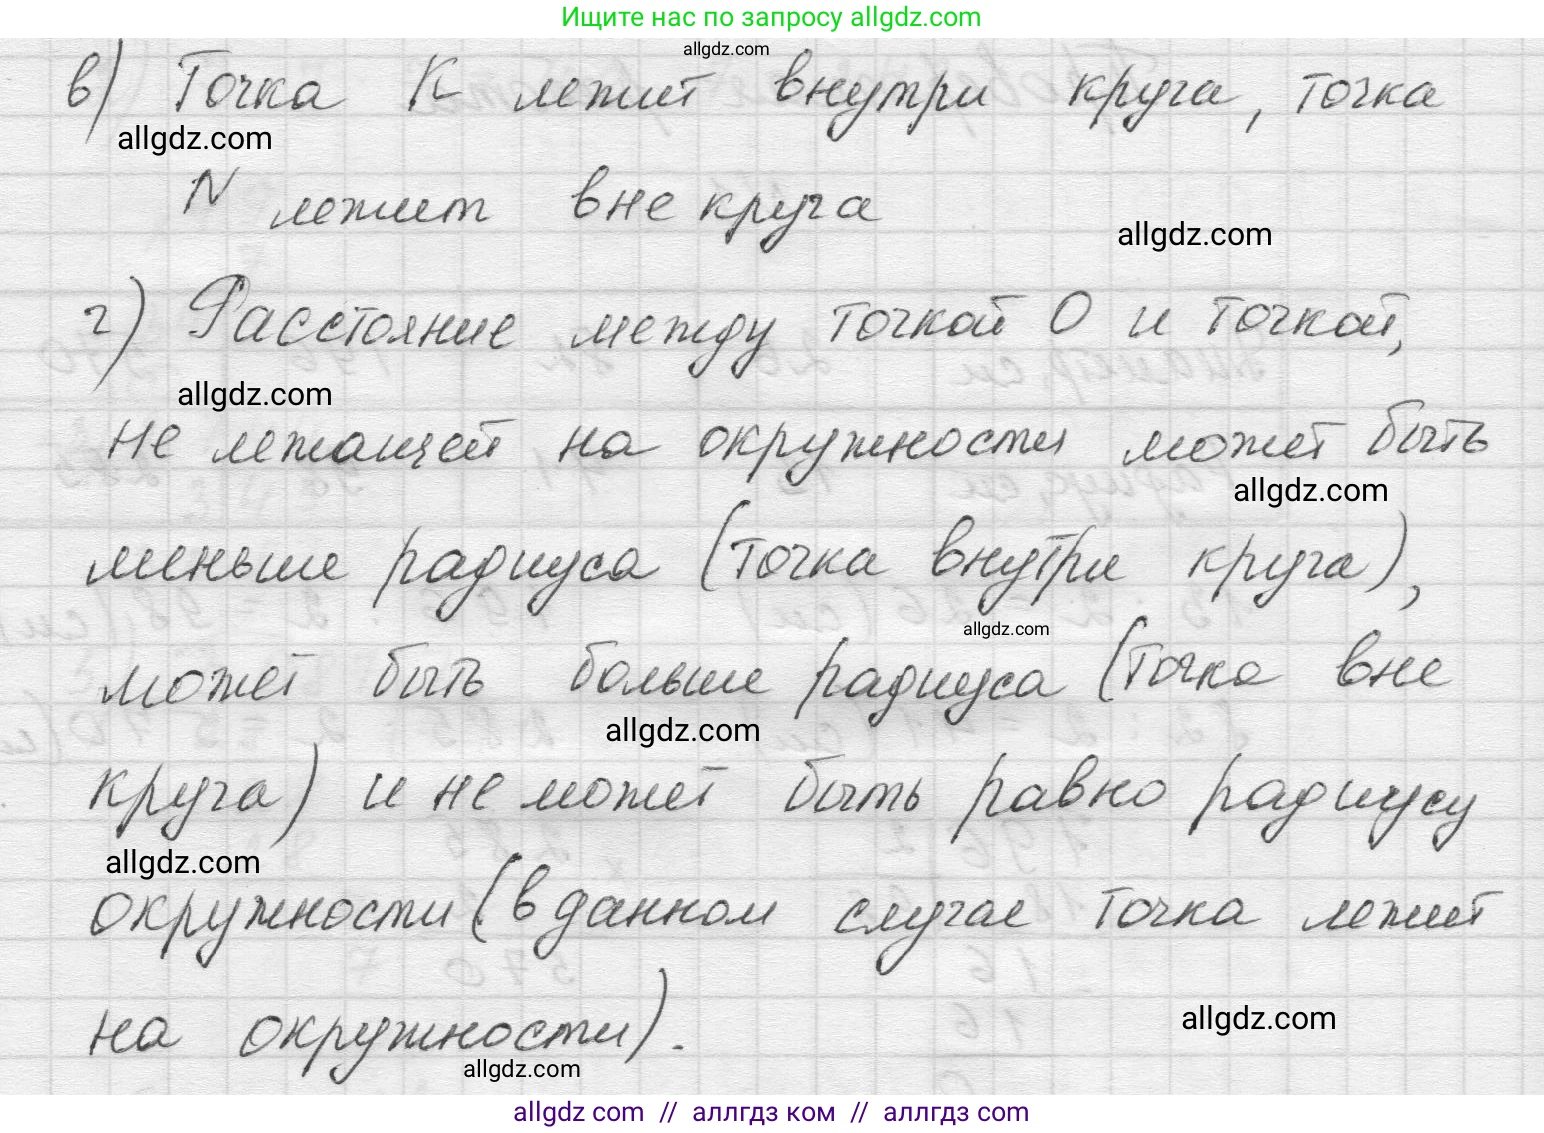 Ищите нас по запросу allgdz.com
allgdz.com
в) Точка К лежит внутри круга, точка
allgdz.com
N лежит вне круга
allgdz.com
г) Расстояние между точкой О и точкой,
allgdz.com
не лежащей на окружности может быть
allgdz.com
меньше радиуса (точка внутри круга),
allgdz.com
может быть больше радиуса (точка вне
allgdz.com
круга) и не может быть равно радиусу
allgdz.com
окружности (в данном случае точка лежит
на окружности).
allgdz.com
allgdz.com
allgdz com // аллгдз ком // аллгдз com